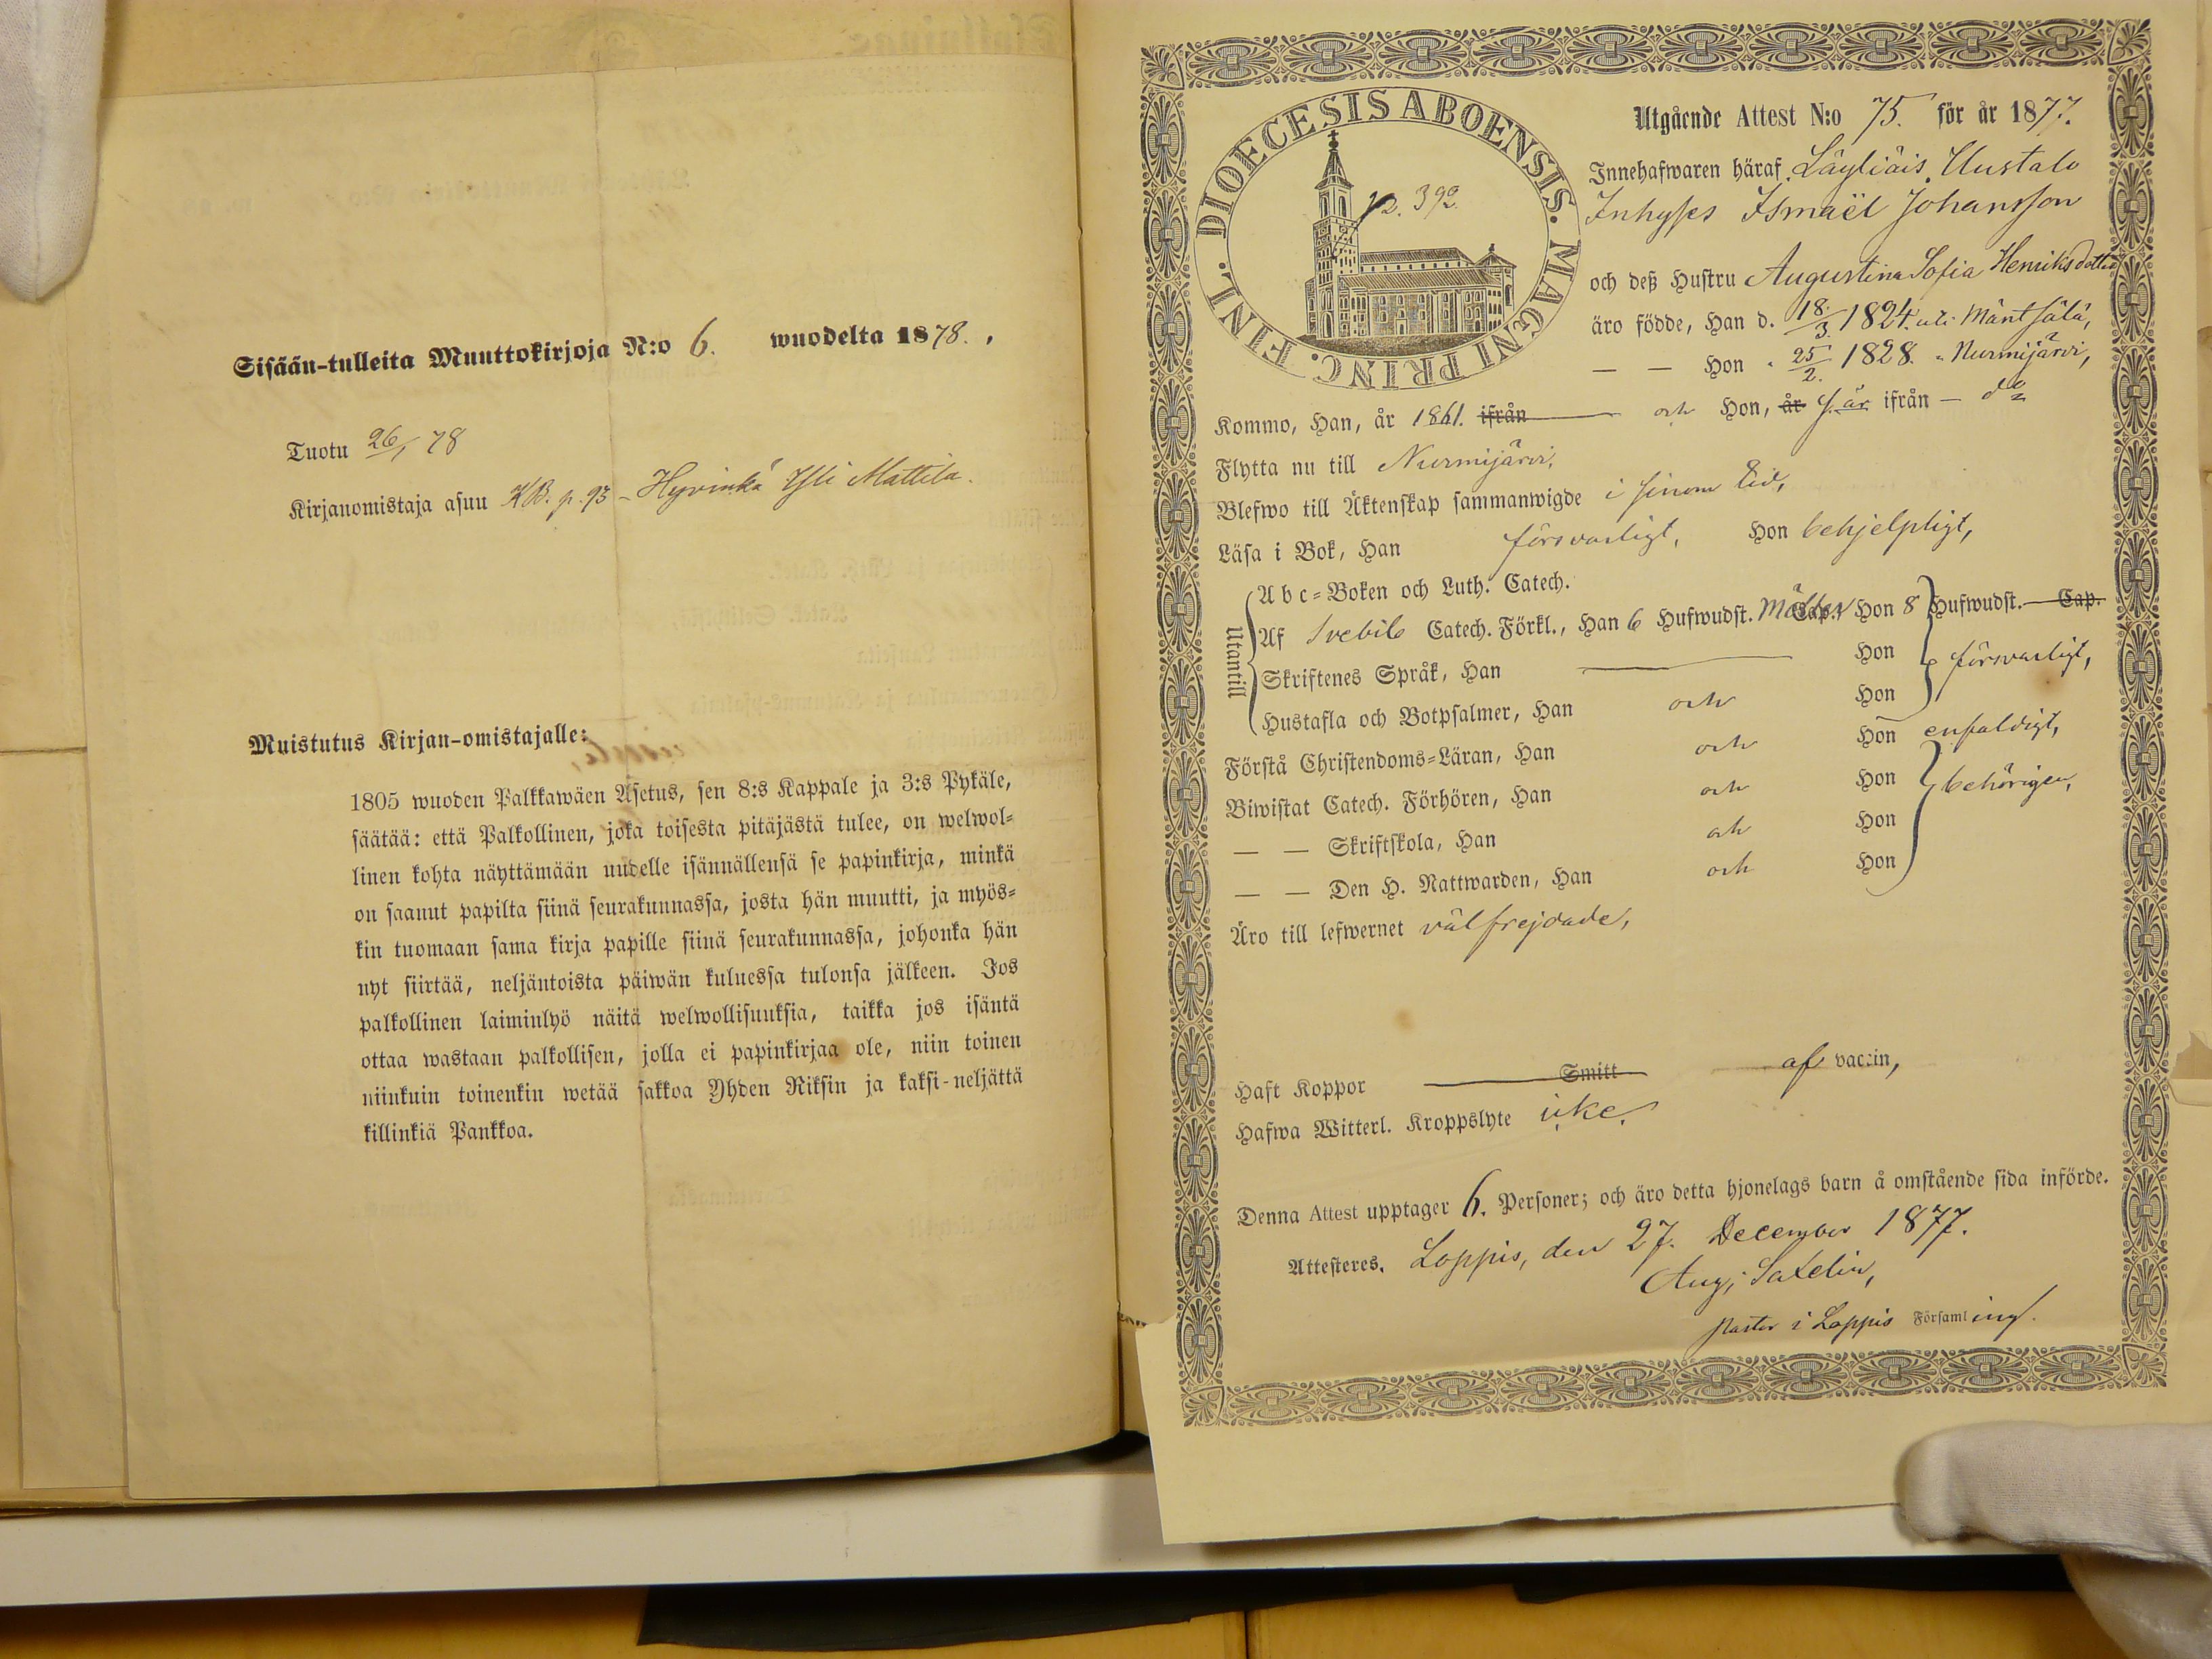 Sisään-tulleita Muuttokirjoja N:o 6. wuodelta 1878.
Tuotu 26/1 78
Kirjanomistaja asuu KB. p. 93 – Hyvinkä Yli Mattila.
Muistutus Kirjan-omistajalle:
1805 wuoden Palkkawäen Asetus, sen 8:s Kappale ja 3:s Pykäle,
säätää: että Palkollinen, joka toisesta pitäjästä tulee, on welwol-
linen kohta näyttämään uudelle isännällensä se papinkirja, minkä
on saanut papilta siinä seurakunnassa, josta hän muutti, ja myös-
kin tuomaan sama kirja papille siinä seurakunnassa, johonka hän
nyt siirtää, neljäntoista päiwän kuluessa tulonsa jälkeen. Jos
palkollinen laiminlyö näitä welwollisuuksia, taikka jos isäntä
ottaa wastaan palkollisen, jolla ei papinkirjaa ole, niin toinen
niinkuin toinenkin wetää sakkoa Yhden Riksin ja kaksi-neljättä
killinkiä Pankkoa.
FINL. DIOECESIS ABOENSIS. MAGNI PRINC.
p. 393.
Utgående Attest N:o 75. för år 1877.
Innehafwaren häraf Läyliäis, Uustalo
Inhyses Ismaël Johansson
och deß Hustru Augustina Sofia Henriksdotter
äro födde, Han d. 18/3 1824. uti Mäntsälä,
— — Hon " 25/2. 1828. " Nurmijärvi,
Kommo, Han, år 1861. ifrån och Hon, år s. år ifrån — do
Flytta nu till Nurmijärvi,
Blefwo till Äktenskap sammanwigde i sinom tid,
Läsa i Bok, Han försvarligt, Hon behjelpligt,
Utantill
A b c-Boken och Luth. Catech.
Af Svebili Catech. Förkl., Han 6 Hufwudst. Cap. Hon 8 Hufwudst. Cap.
Skriftenes Språk, Han — Hon försvarligt,
Hustafla och Botpsalmer, Han och Hon
Förstå Christendoms-Läran, Han och Hon enfaldigt,
Biwistat Catech. Förhören, Han och Hon behörigen,
— — Skriftskola, Han och Hon
— — Den H. Nattwarden, Han och Hon
Äro till lefwernet välfrejdade,
Haft Koppor Smitt af vaccin,
Hafwa Witterl. Kroppslyte icke.
Denna Attest upptager 6. Personer; och äro detta hjonelags barn å omstående sida införde.
Attesteres. Loppis, den 27. December 1877.
Aug. Saxelin,
Pastor i Loppis Församling.